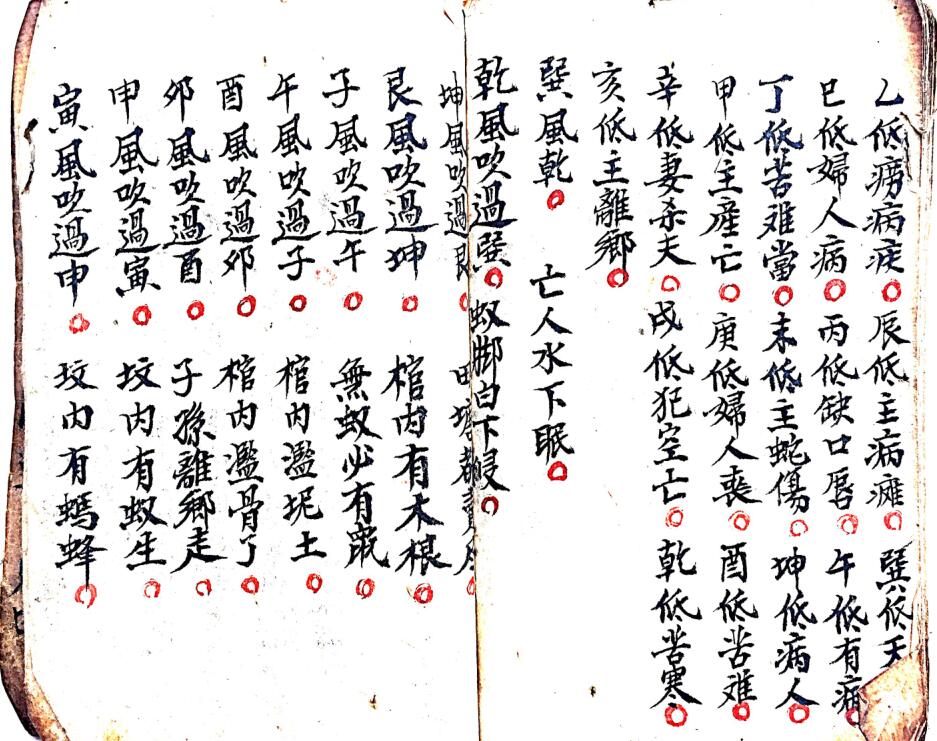 乙低癆病疾○辰低主病癱○巽低天
巳低婦人病○丙低缺口唇○午低有病○
丁低苦难當○未低主蛇傷○坤低病人○
甲低主産亡○庚低婦人喪○酉低苦难○
辛低妻杀夫○戌低犯空亡○乾低苦寒○
亥低主離鄉○
巽風乾○亡人水下眠○
乾風吹過巽○蚁脚白下
坤風吹過艮○田
艮風吹過坤○棺内有木根○
子風吹過午○無蚁必有鼠○
午風吹過子○棺内濫坭土○
酉風吹過卯○棺内濫骨了○
卯風吹過酉○子孫離鄉走○
申風吹過寅○坟内有蚁生○
寅風吹過申○坟内有螞蜂○